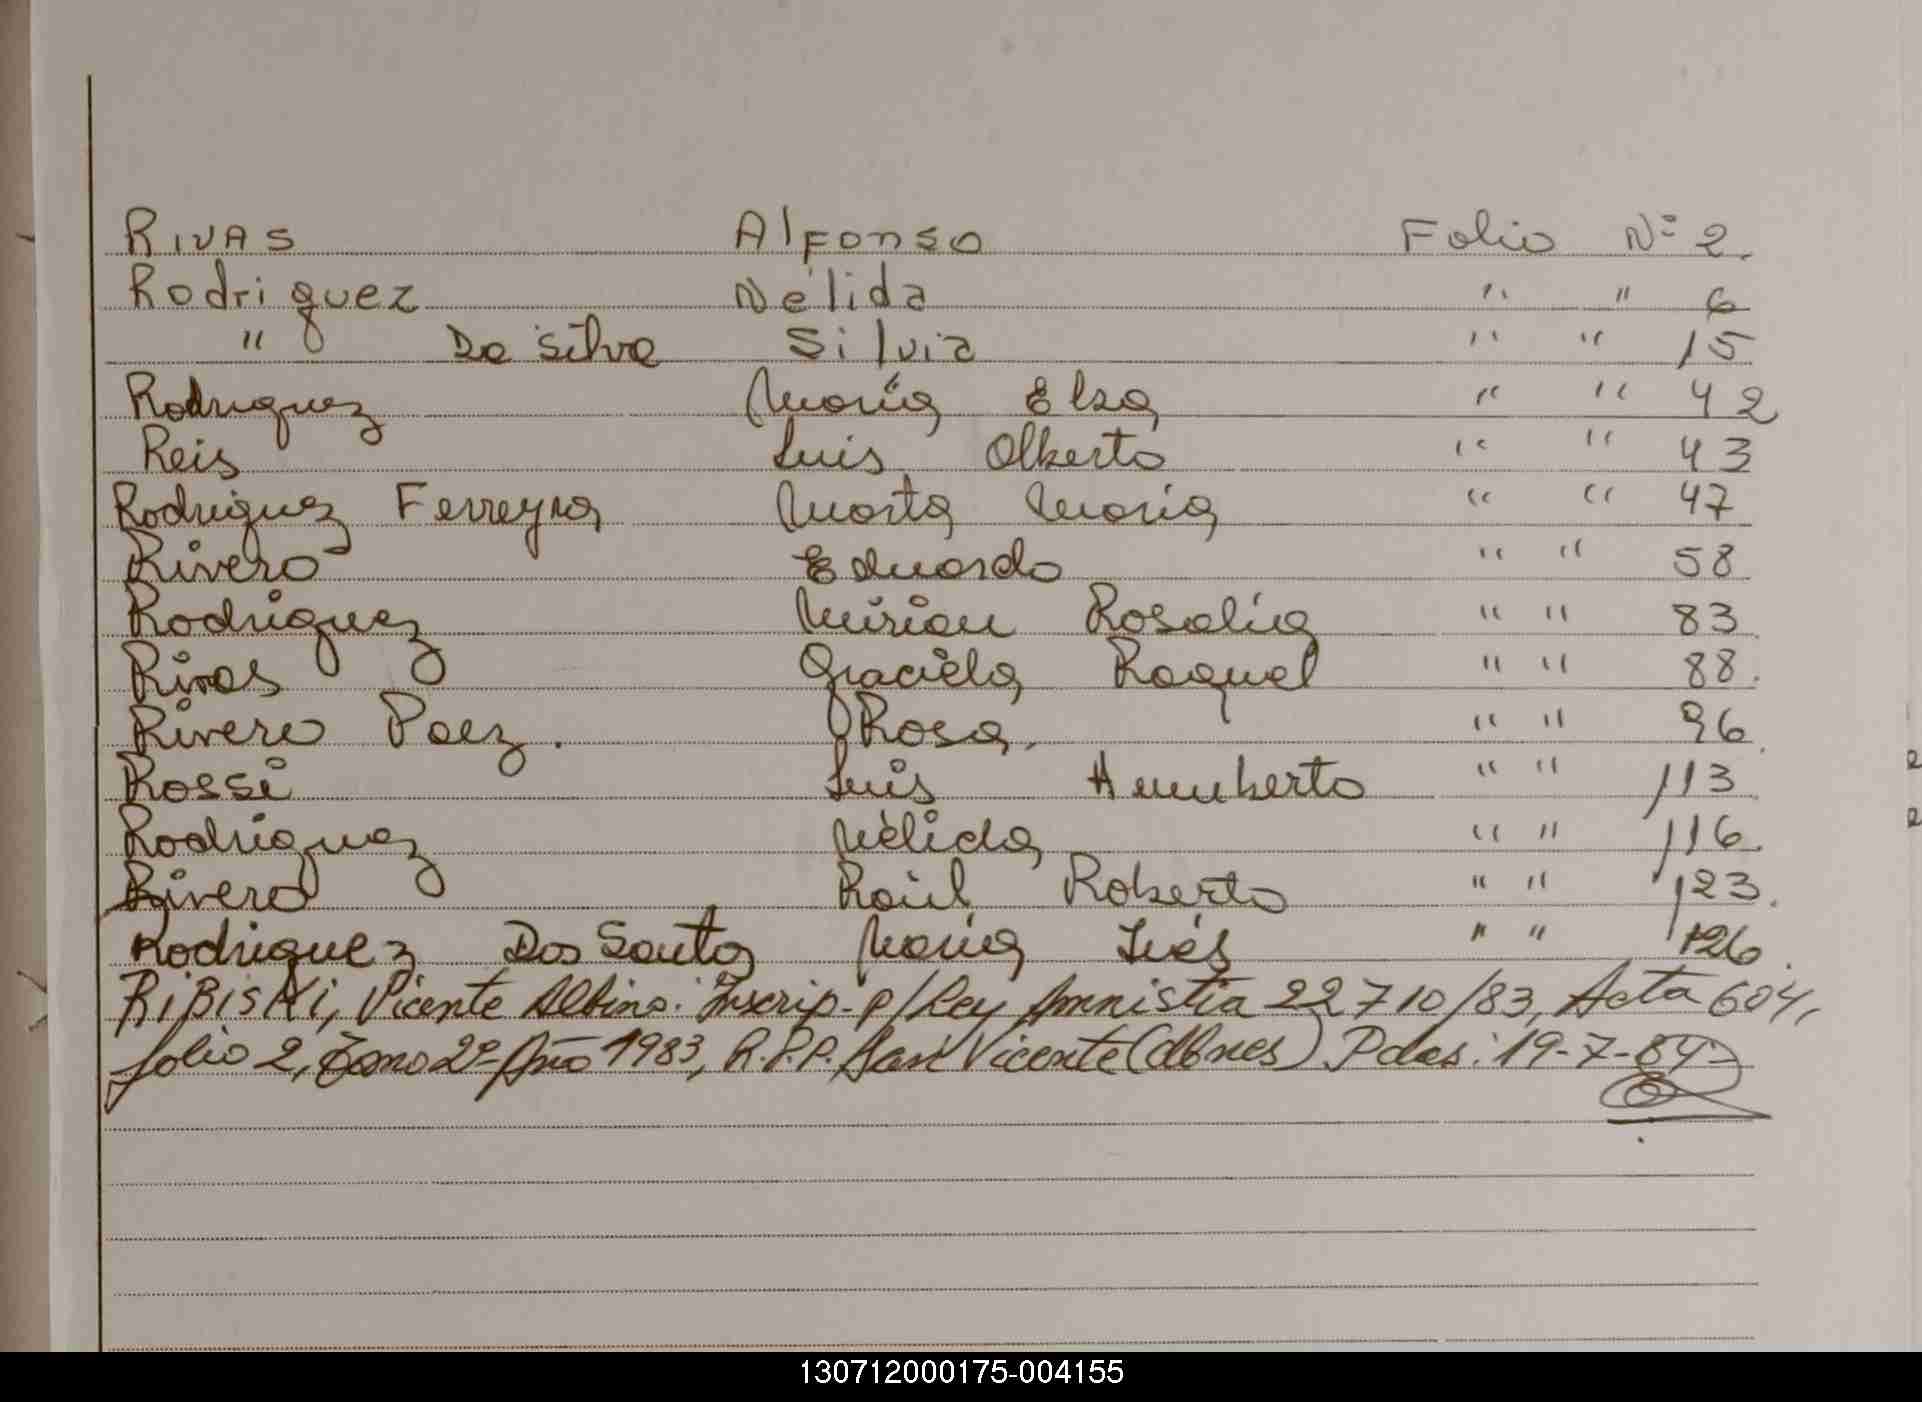 RIVAS Alfonso Folio Nº 2.
Rodriguez Nélida " " 6
" Da Silva Silvia " " 15
Rodriguez María Elsa " " 42
Reis Luis Alberto " " 43
Rodriguez Ferreyra Marta María " " 47
Rivero Eduardo " " 58
Rodriguez Mirian Rosalia " " 83
Rivas Graciela Raquel " " 88.
Rivero Paez. Rosa. " " 96.
Rossi Luis Humberto " " 113
Rodriguez Nélida " " 116.
Rivero Raúl Roberto " " 123.
Rodriguez Dos Santos María Inés " " 126.
RIBISKI, Vicente Albino: Inscrip. p/Ley Amnistia 22710/83, Acta 604,
folio 2, Tomo 2º Año 1983, R.P.P. San Vicente Pdas: 19-7-84
130712000175-004155